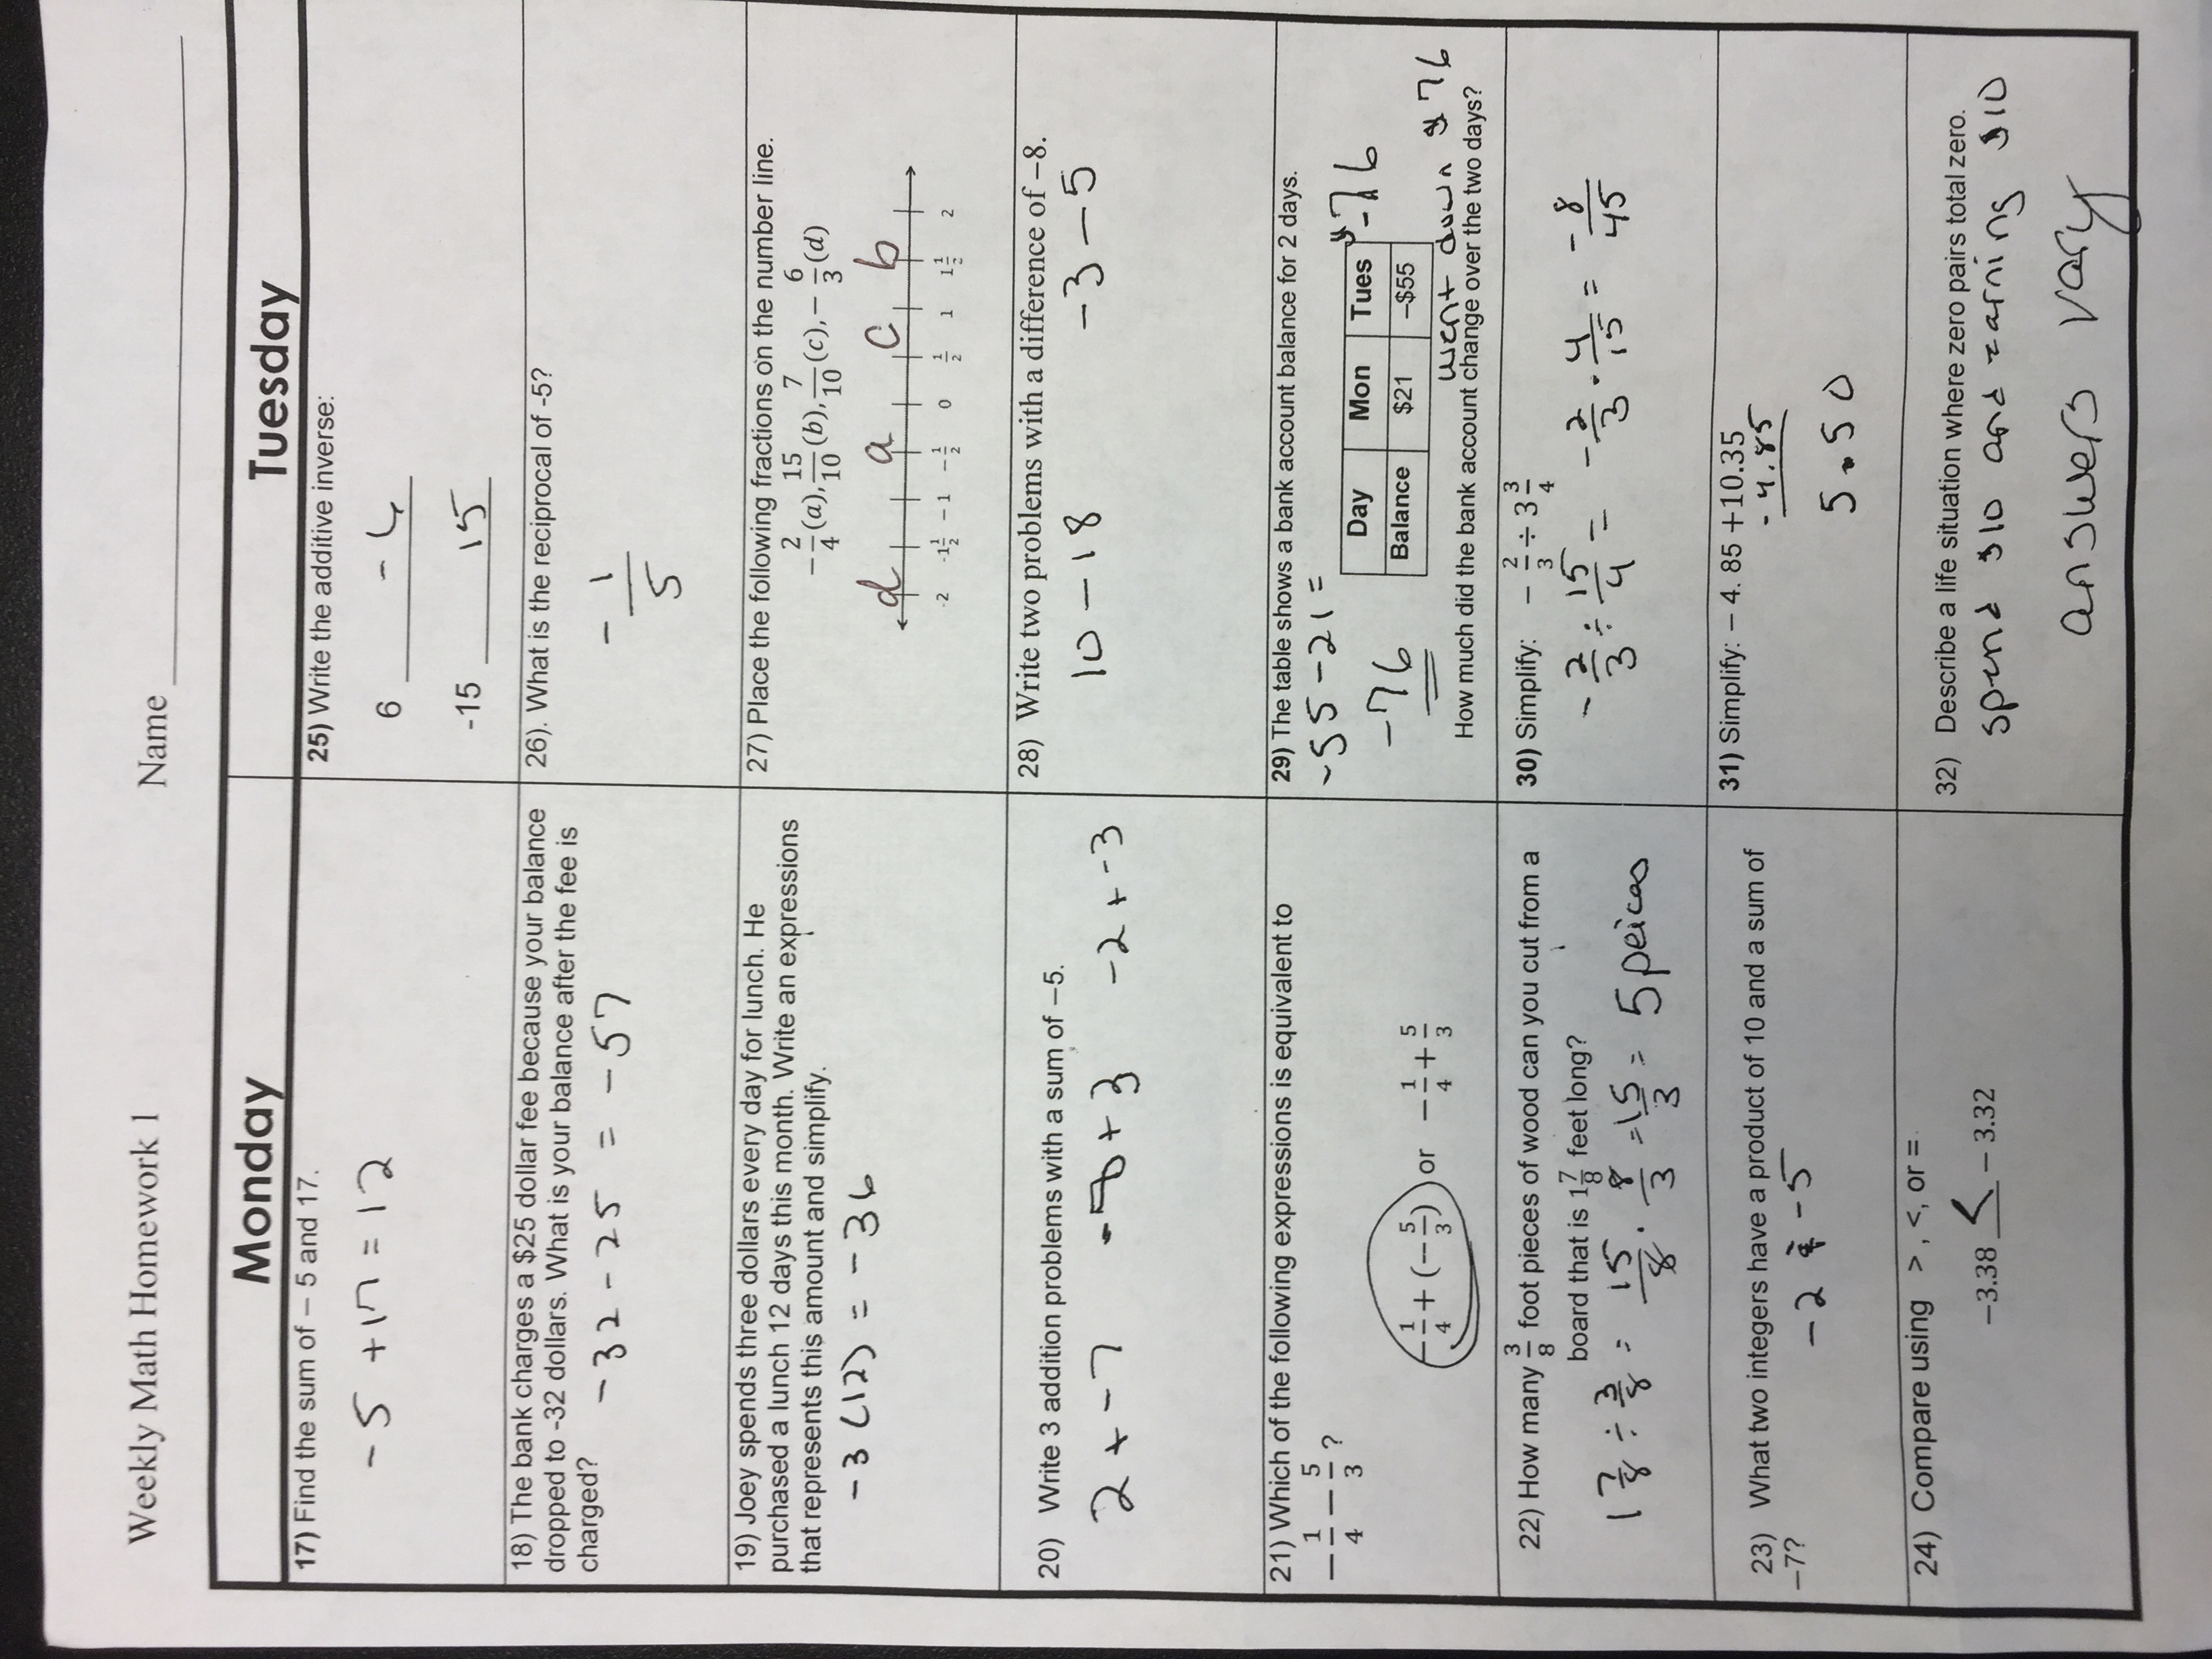 Weekly Math Homework 1
Name
Monday
17) Find the sum of – 5 and 17.
-5 + 17 = 12
18) The bank charges a $25 dollar fee because your balance
dropped to -32 dollars. What is your balance after the fee is
charged?
-32 - 25 = -57
19) Joey spends three dollars every day for lunch. He
purchased a lunch 12 days this month. Write an expressions
that represents this amount and simplify.
-3 (12) = -36
20) Write 3 addition problems with a sum of –5.
2 + -7 -8 + 3 -2 + -3
21) Which of the following expressions is equivalent to
–1/4 – 5/3?
–1/4 + (–5/3) or –1/4 + 5/3
22) How many 3/8 foot pieces of wood can you cut from a
board that is 1 7/8 feet long?
1 7/8 ÷ 3/8 = 15/8 · 8/3 = 15/3 = 5 peices
23) What two integers have a product of 10 and a sum of
–7?
-2 & -5
24) Compare using > , <, or =
–3.38 < – 3.32
Tuesday
25) Write the additive inverse:
6 -6
-15 15
26). What is the reciprocal of -5?
-1/5
27) Place the following fractions on the number line.
–2/4 (a), 15/10 (b), 7/10 (c), –6/3 (d)
d a c b
-2 -1 1/2 –1 –1/2 0 1/2 1 1 1/2 2
28) Write two problems with a difference of –8.
10 - 18 -3 - 5
29) The table shows a bank account balance for 2 days.
-55 - 21 =
-76
Day Mon Tues
Balance $21 –$55
$-76
went down $76
How much did the bank account change over the two days?
30) Simplify: –2/3 ÷ 3 3/4
-2/3 ÷ 15/4 = -2/3 · 4/15 = -8/45
31) Simplify: – 4. 85 +10.35
-4.85
5.50
32) Describe a life situation where zero pairs total zero.
spend $10 and earning $10
answers vary